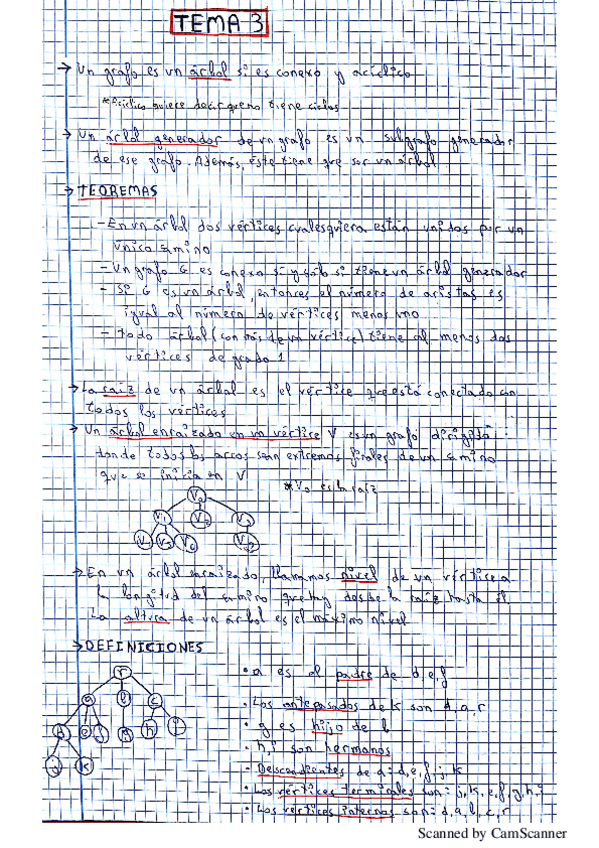 TEMA 3
→ Un grafo es un árbol si es conexo y acíclico
*Acíclico quiere decir que no tiene ciclos
→ Un árbol generador de un grafo es un subgrafo generador
de ese grafo. Además, éste tiene que ser un árbol
→ TEOREMAS
- En un árbol dos vértices cualesquiera están unidos por un
único camino
- Un grafo G es conexo si y sólo si tiene un árbol generador
- Si G es un árbol, entonces el número de aristas es
igual al número de vértices menos uno
- Todo árbol (con más de un vértice) tiene al menos dos
vértices de grado 1
→ La raiz de un árbol es el vértice que está conectado con
todos los vértices
→ Un árbol enraizado en un vértice V es un grafo dirigido
donde todos los arcos son extremos finales de un camino
que se inicia en V
*V₀ es la raiz
V₀
V₁ V₂ V₃
→ En un árbol enraizado, llamamos nivel de un vértice a
la longitud del camino que hay desde la raiz hasta él
La altura de un árbol es el máximo nivel
→ DEFINICIONES
r
a b c
d e f g h i
j k
• a es el padre de d, e, f
• Los antepasados de k son d, a, r
• g es hijo de b
• h, i son hermanos
- Descendientes de a: d, e, f, j, k
• Los vértices terminales son: j, k, e, f, g, h, i
• Los vértices internos son: d, a, b, c, r
Scanned by CamScanner